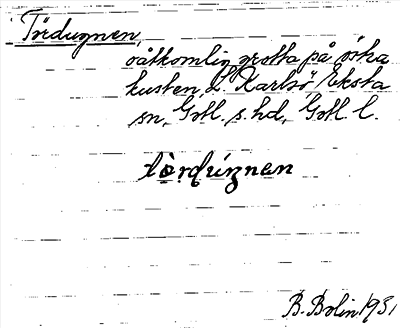 Tördugnen,
oåtkomlig grotta på östra
kusten, L. Karlsö, Eksta
sn, Gotl. s. hd, Gotl. l.
tò̱rdúgnen
B. Bolin 1931